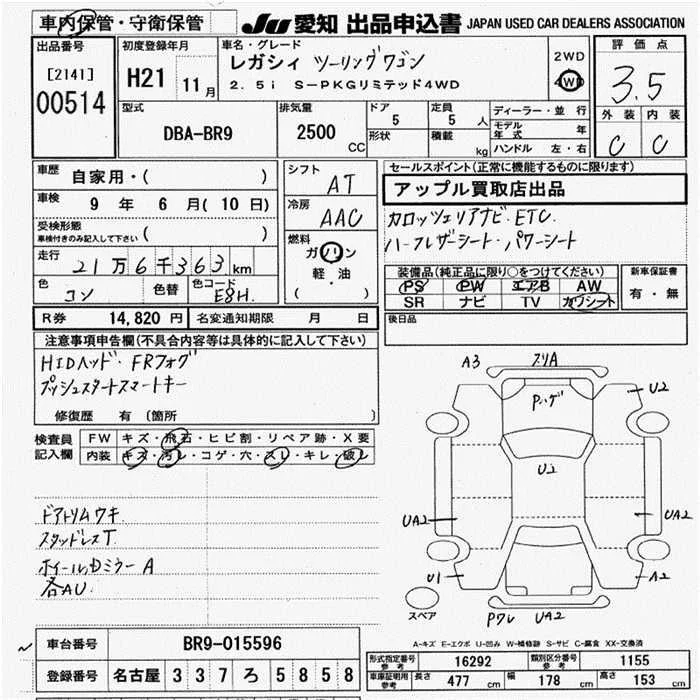 車内保管・守衛保管
JU 愛知 出品申込書 JAPAN USED CAR DEALERS ASSOCIATION
出品番号
[2141]
00514
初度登録年月
H21 11月
車名・グレード
レガシィ ツーリングワゴン
2.5i S-PKGリミテッド4WD
2WD
4WD
評価点
3.5
外装 内装
C C
型式
DBA-BR9
排気量
2500 CC
ドア 5
形状
定員 5 人
積載 kg
ディーラー・並行
モデル年式 年
ハンドル 左・右
車歴 自家用・( )
車検 9年 6月(10日)
受検形態
車検付きのみ記入して下さい ( )
走行 21万6千363km
色 コン 色替 色コード E8H
シフト AT
冷房 AAC
燃料
ガソリン
軽・油
( )
セールスポイント(正常に機能するものに限ります)
アップル買取店出品
カロッツェリアナビ. ETC.
ハーフレザーシート・パワーシート
装備品(純正品に限り○をつけてください)
PS PW エアB AW
SR ナビ TV カワシート
新車保証書
有・無
後日品
R券 14,820円 名変通知期限 月 日
注意事項申告欄(不具合内容等は具体的に記入して下さい)
HIDヘッド・FRフォグ
プッシュスタートスマートキー
修復歴 有 〔箇所 〕
検査員記入欄
FW キズ・飛石・ヒビ割・リペア跡・X要
内装 キズ・汚レ・コゲ・穴・スレ・キレ・破レ
ドアトリムワキ
スタッドレスT
ホイールDミラーA
各AU.
A3 スリA
Pハゲ
U2
U2
UA2
UA2
U1
A2
スペア
Pワレ UA2
A-キズ E-エクボ U-凹み W-補修跡 S-サビ C-腐食 XX-交換済
車台番号 BR9-015596
登録番号 名古屋 337ろ5858
形式指定番号参考 16292 類別区分番号参考 1155
車庫証明用参考 長さ 477cm 幅 178cm 高さ 153cm